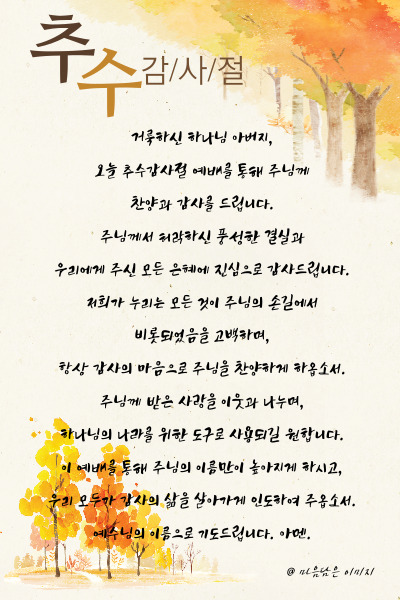 추수감/사/절
거룩하신 하나님 아버지,
오늘 추수감사절 예배를 통해 주님께
찬양과 감사를 드립니다.
주님께서 허락하신 풍성한 결실과
우리에게 주신 모든 은혜에 진심으로 감사드립니다.
저희가 누리는 모든 것이 주님의 손길에서
비롯되었음을 고백하며,
항상 감사의 마음으로 주님을 찬양하게 하옵소서.
주님께 받은 사랑을 이웃과 나누며,
하나님의 나라를 위한 도구로 사용되길 원합니다.
이 예배를 통해 주님의 이름만이 높아지게 하시고,
우리 모두가 감사의 삶을 살아가게 인도하여 주옵소서.
예수님의 이름으로 기도드립니다. 아멘.
@ 마음담은 이미지